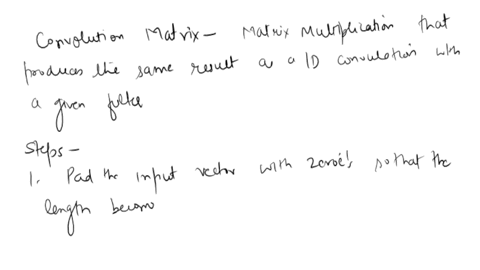 Convolution Matrix - Matrix Multiplication that
produces the same result as a 1D convolution with
a given filter
Steps -
1. Pad the input vector with zeroe's so that the
length becom